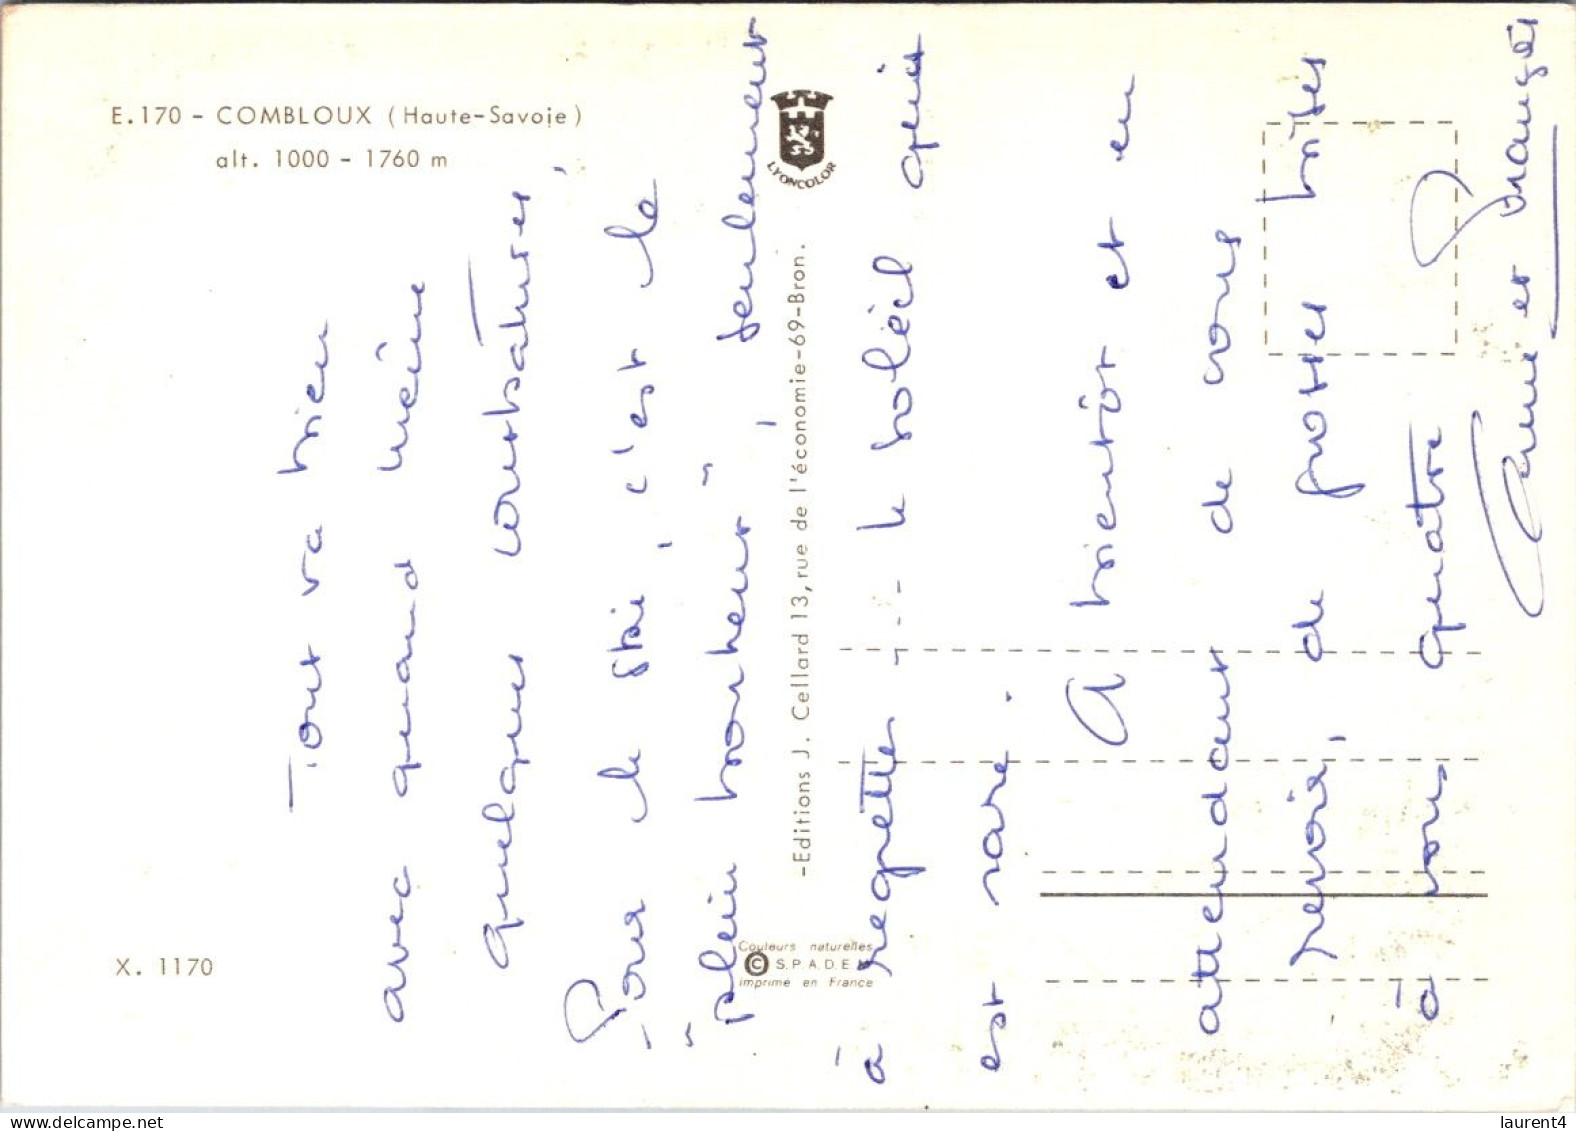 E.170 - COMBLOUX (Haute-Savoie)
alt. 1000 - 1760 m
LYONCOLOR
-Editions J. Cellard 13, rue de l'économie-69-Bron.
X. 1170
Couleurs naturelles
© S.P.A.D.E.M
imprimé en France
Tout va bien
avec quand même
quelques courbatures,
Pour le skai, c'est le
"plein bonheur", seulement
à regretter --- le soleil qui
est rare.
A bientôt et en
attendant de vous
revoir, de grosses bises
à vous quatre
et François
laurent4